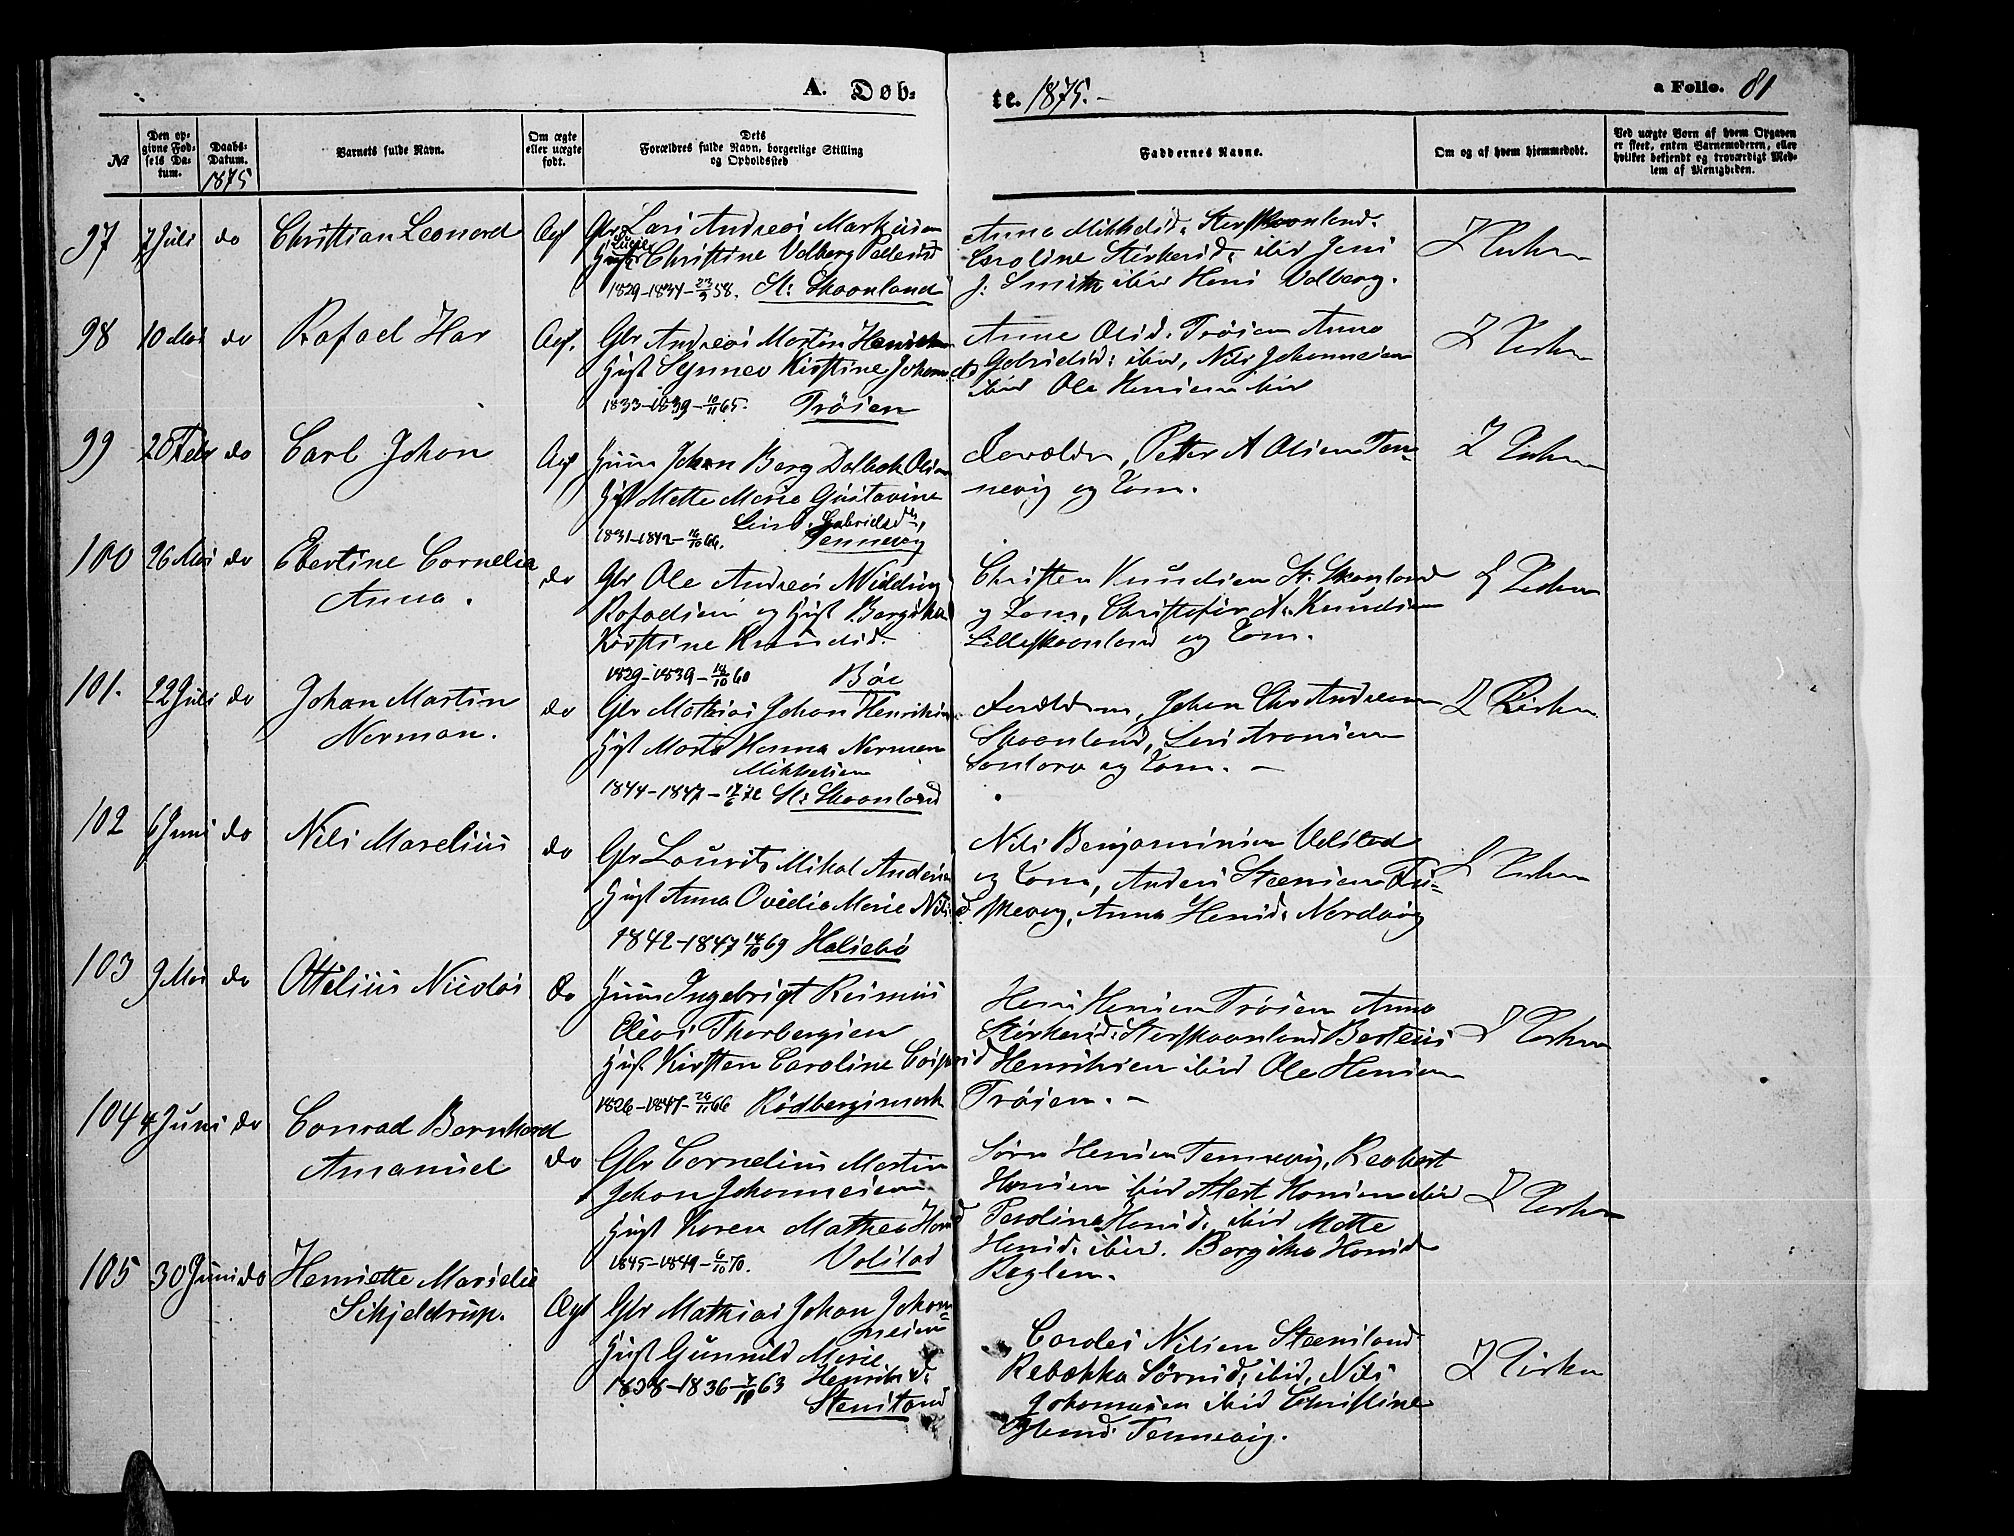 A. Døb-
te. 1875.-
a Folio. 81
№
Den op-
givne Fød-
sels Da-
tum.
Daabs-
Datum.
1875
Barnets fulde Navn.
Om ægte
eller uægte
født.
Dets
Forældres fulde Navn, borgerlige Stilling
og Opholdssted
Faddernes Navne.
Om og af hvem hjemmedøbt.
Ved uægte Børn af hvem Opgaven
er skeet, enten Barnemoderen, eller
hvilket bekjendt og troværdigt Med-
lem af Menigheden.
97 7 Juli do Christian Leonard Ægt
Gbr Lars Andreas Markusen
Christine Volberg Pedersd
1829-1834-23/9 58. St: Skaanland
Anna Mikkelsd: Storskaanland.
Caroline Størkersd: ibid Jens
J: Smith ibid Hans Volberg.
I Kirken
98 10 Mai do Rafael Har Ægt.
Gbr Andreas Martin Henriksen
Hust Synnev Kirstine Johannesd
1833-1839-10/11 65. Trøsen
Anne Olsd: Trøsen Anna
Gabrielsd: ibid, Nils Johannesen
ibid Ole Hansen ibid
I Kirken
99 28 Febr do Carl Johan Ægt
Huusm Johan Berg Dalbak Olsen
Hust Mette Marie Gustavine
Gabrielsd
1831-1842-16/10 66. Tennevig
Forældrene, Petter A Olsen Ten-
nevig og Kone.
I Kirken
100 26 Mai do Ebertine Cornelia do
Anna.
Gbr Ole Andreas Milding
Rafaelsen og Hust Bergitha
Kirstine Knudsd.
1829-1839-18/10 60 Böe
Christen Knudsen St. Skaanland
og Kone, Christofer A. Knudsen
Lilleskaanland og Kone.
I Kirken
101. 22 Juli do Johan Martin do
Norman.
Gbr Mathias Johan Henriksen
Hust Marta Hanna Norman
Mikkelsen
1844-1847-17/6 72 St: Skaanland
Forældrene, Johan Chr Andreasen
Skaanland, Lars Aronsen
Sandtorv og Kone. -
I Kirken
102 6 Juni do Nils Marelius do
Gbr Laurits Mikal Andersen
Hust Anna Ovedia Marie Nilsd.
1842-1847 14/10 69 Halsebø
Nils Benjaminsen Volstad
og Kone, Anders Steensen Fi-
skevog, Anna Hansd: Nordvig
I Kirken
103 9 Mai do Ottelius Nicolai do
Huusm Ingebrigt Rasmus
Elias Thorbergsen
Hust Kirsten Caroline Caspersd
1826-1847-26/11 66 Rødbergsmark
Hans Hansen Trøsen Anna
Størkersd: Storskaanland Berteus
Henriksen ibid Ole Hansen
Trøsen. -
I Kirken
104 4 Juni do Conrad Bernhard
Amanuel do
Gbr Cornelius Martin
Johan Johannesen
Hust Karen Mathea Hansd
1845-1849-6/10 70. Volstad
Sørn Hansen Tennevig, Reobert
Hansen ibid Albert Hansen ibid
Paroline Hansd. ibid Mette
Hansd: ibid. Bergitha Hansd
Reglen.
I Kirken
105 30 Juni do Henriette Marselie
Schjeldrup. Ægt
Gbr Mathias Johan Johan-
nesen
Hust Gunnild Marie
Henriksd:
1838-1836-7/10 63
Stensland
Cardes Nilsen Steensland
Rebækka Sörnsd: ibid, Nils
Johannesen ibid Christine
Hansd. Tennevig.
I Kirken